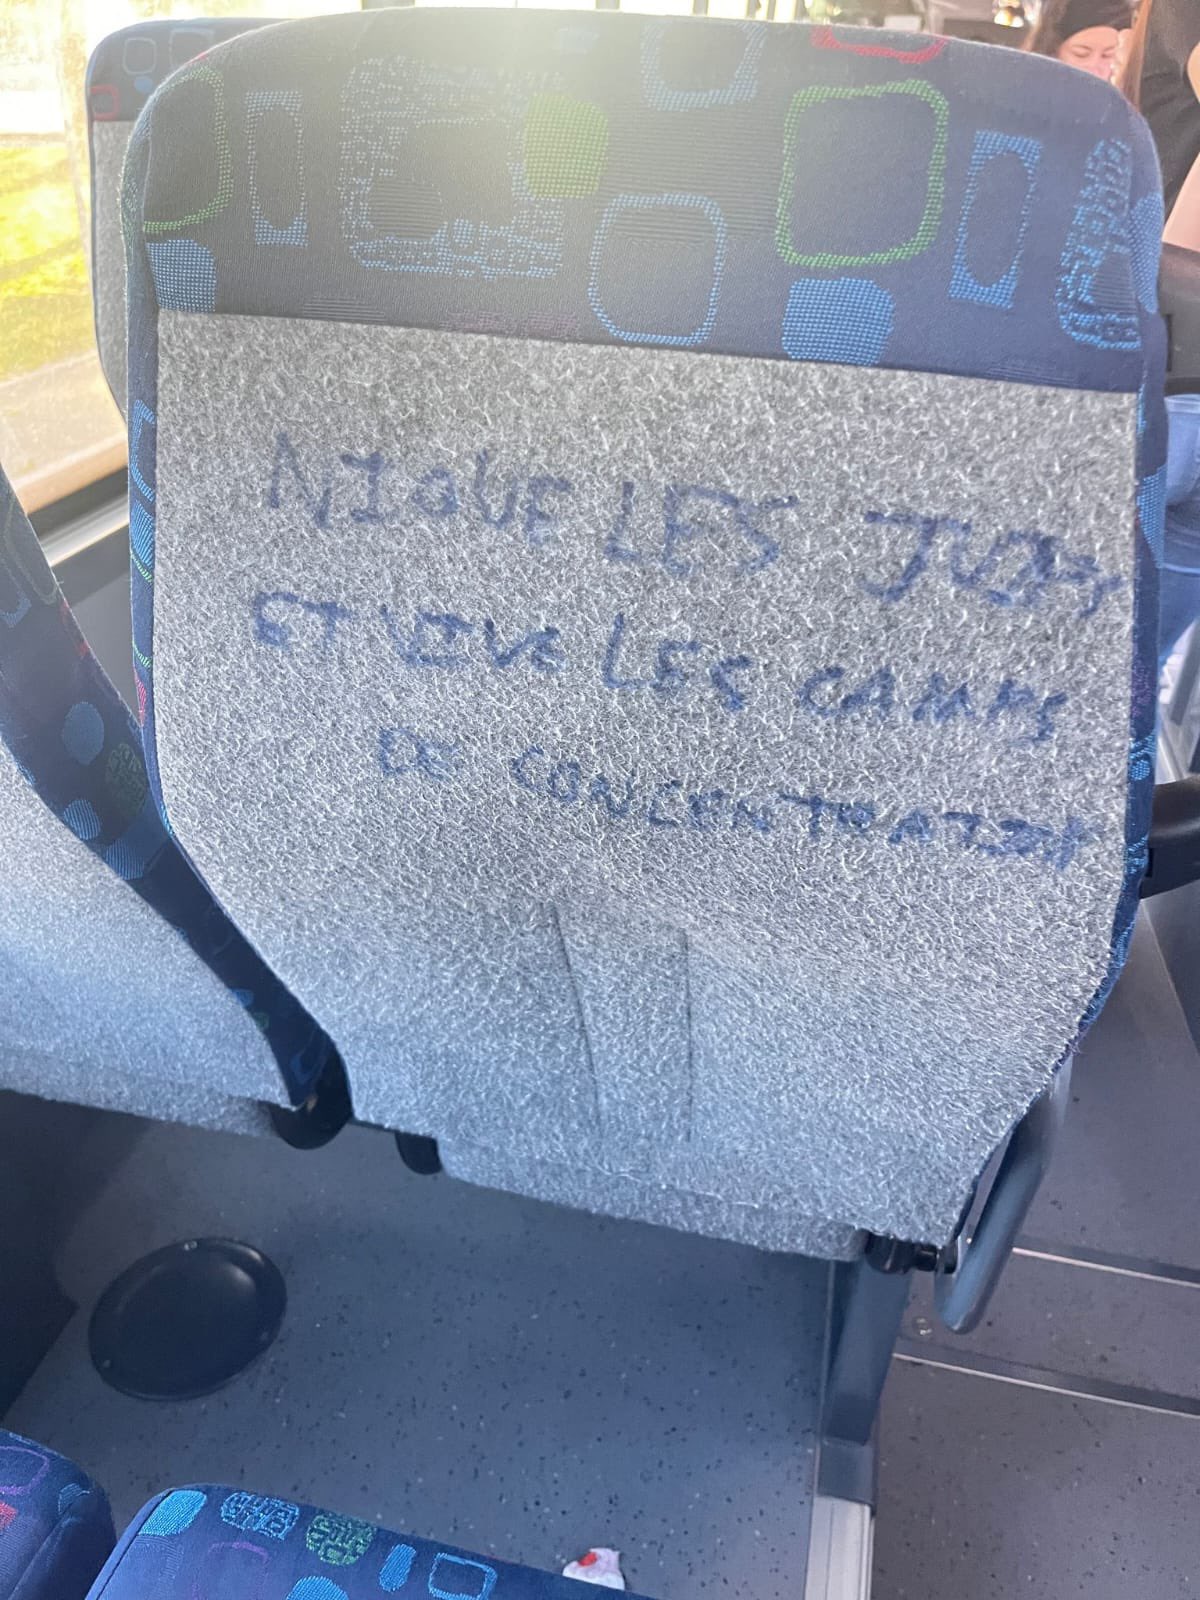 NIQUE LES JUIFS
ET VIVE LES CAMPS
DE CONCENTRATION